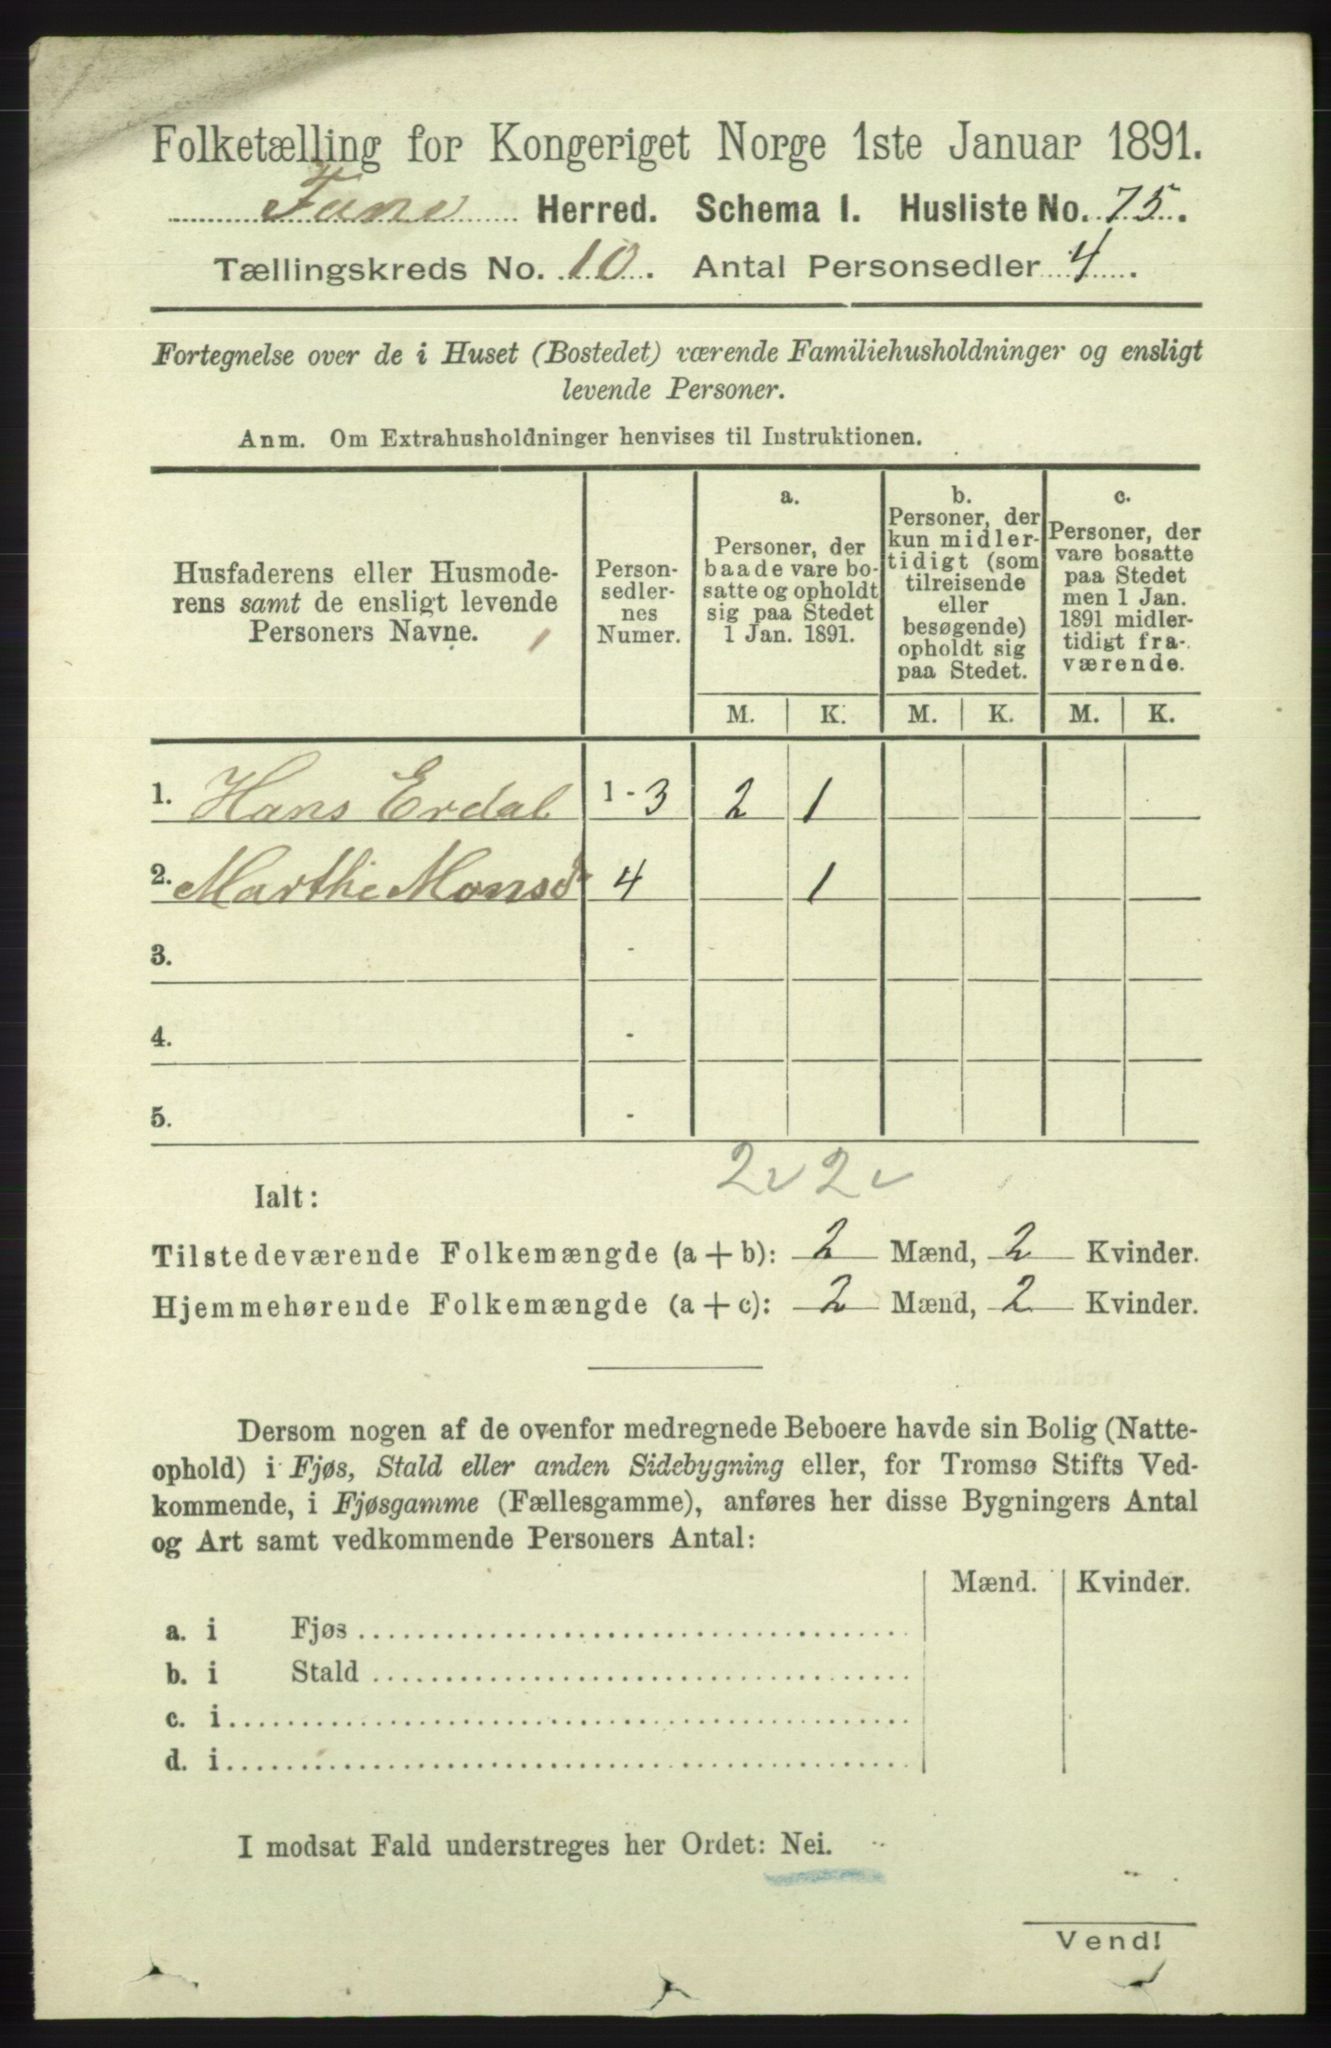 Folketælling for Kongeriget Norge 1ste Januar 1891.
Fane Herred. Schema I. Husliste No. 75.
Tællingskreds No. 10. Antal Personsedler 4.
Fortegnelse over de i Huset (Bostedet) værende Familiehusholdninger og ensligt
levende Personer.
Anm. Om Extrahusholdninger henvises til Instruktionen.
Husfaderens eller Husmode-
rens samt de ensligt levende
Personers Navne.
Person-
sedler-
nes
Numer.
a.
Personer, der
baade vare bo-
satte og opholdt
sig paa Stedet
1 Jan. 1891.
b.
Personer, der
kun midler-
tidigt (som
tilreisende
eller
besøgende)
opholdt sig
paa Stedet.
c.
Personer, der
vare bosatte
paa Stedet
men 1 Jan.
1891 midler-
tidigt fra-
værende.
M. K. M. K. M. K.
1. Hans Erdal 1 - 3 2 1
2. Marthe Monsd 4 1
3. -
4. -
5. -
2 2
Ialt:
Tilstedeværende Folkemængde (a + b): 2 Mænd, 2 Kvinder.
Hjemmehørende Folkemængde (a + c): 2 Mænd, 2 Kvinder.
Dersom nogen af de ovenfor medregnede Beboere havde sin Bolig (Natte-
ophold) i Fjøs, Stald eller anden Sidebygning eller, for Tromsø Stifts Ved-
kommende, i Fjøsgamme (Fællesgamme), anføres her disse Bygningers Antal
og Art samt vedkommende Personers Antal:
Mænd. Kvinder.
a. i Fjøs
b. i Stald
c. i
d. i
I modsat Fald understreges her Ordet: Nei.
Vend!